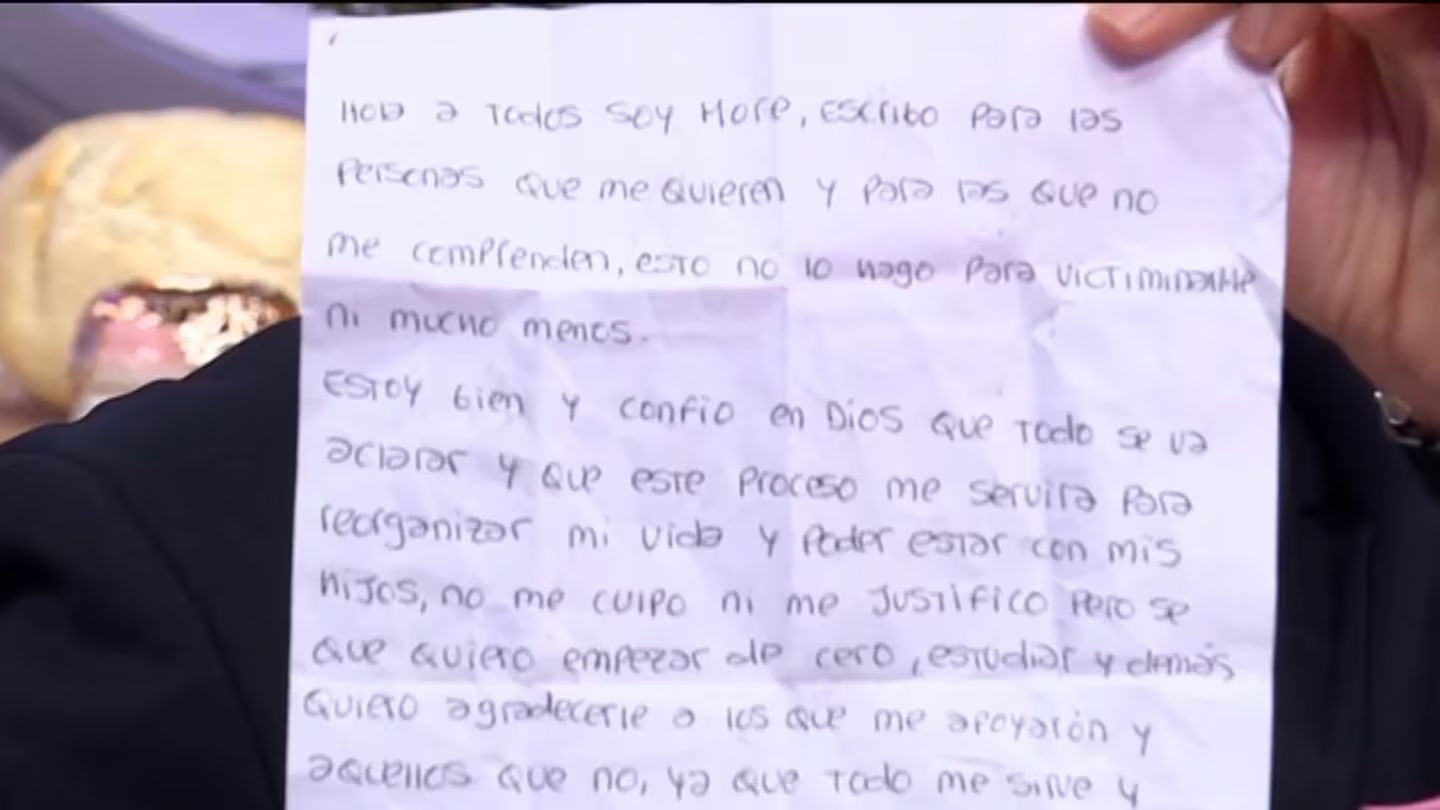 Hola a Todos soy More, escribo para las
personas que me quieren y para las que no
me comprenden, esto no lo hago para victimizarme
ni mucho menos.
Estoy bien y confio en Dios que todo se va
aclarar y que este proceso me servira para
reorganizar mi vida y poder estar con mis
hijos, no me culpo ni me justifico pero se
que quiero empezar de cero, estudiar y demás
Quiero agradecerle a los que me apoyarón y
aquellos que no, ya que todo me sirve y